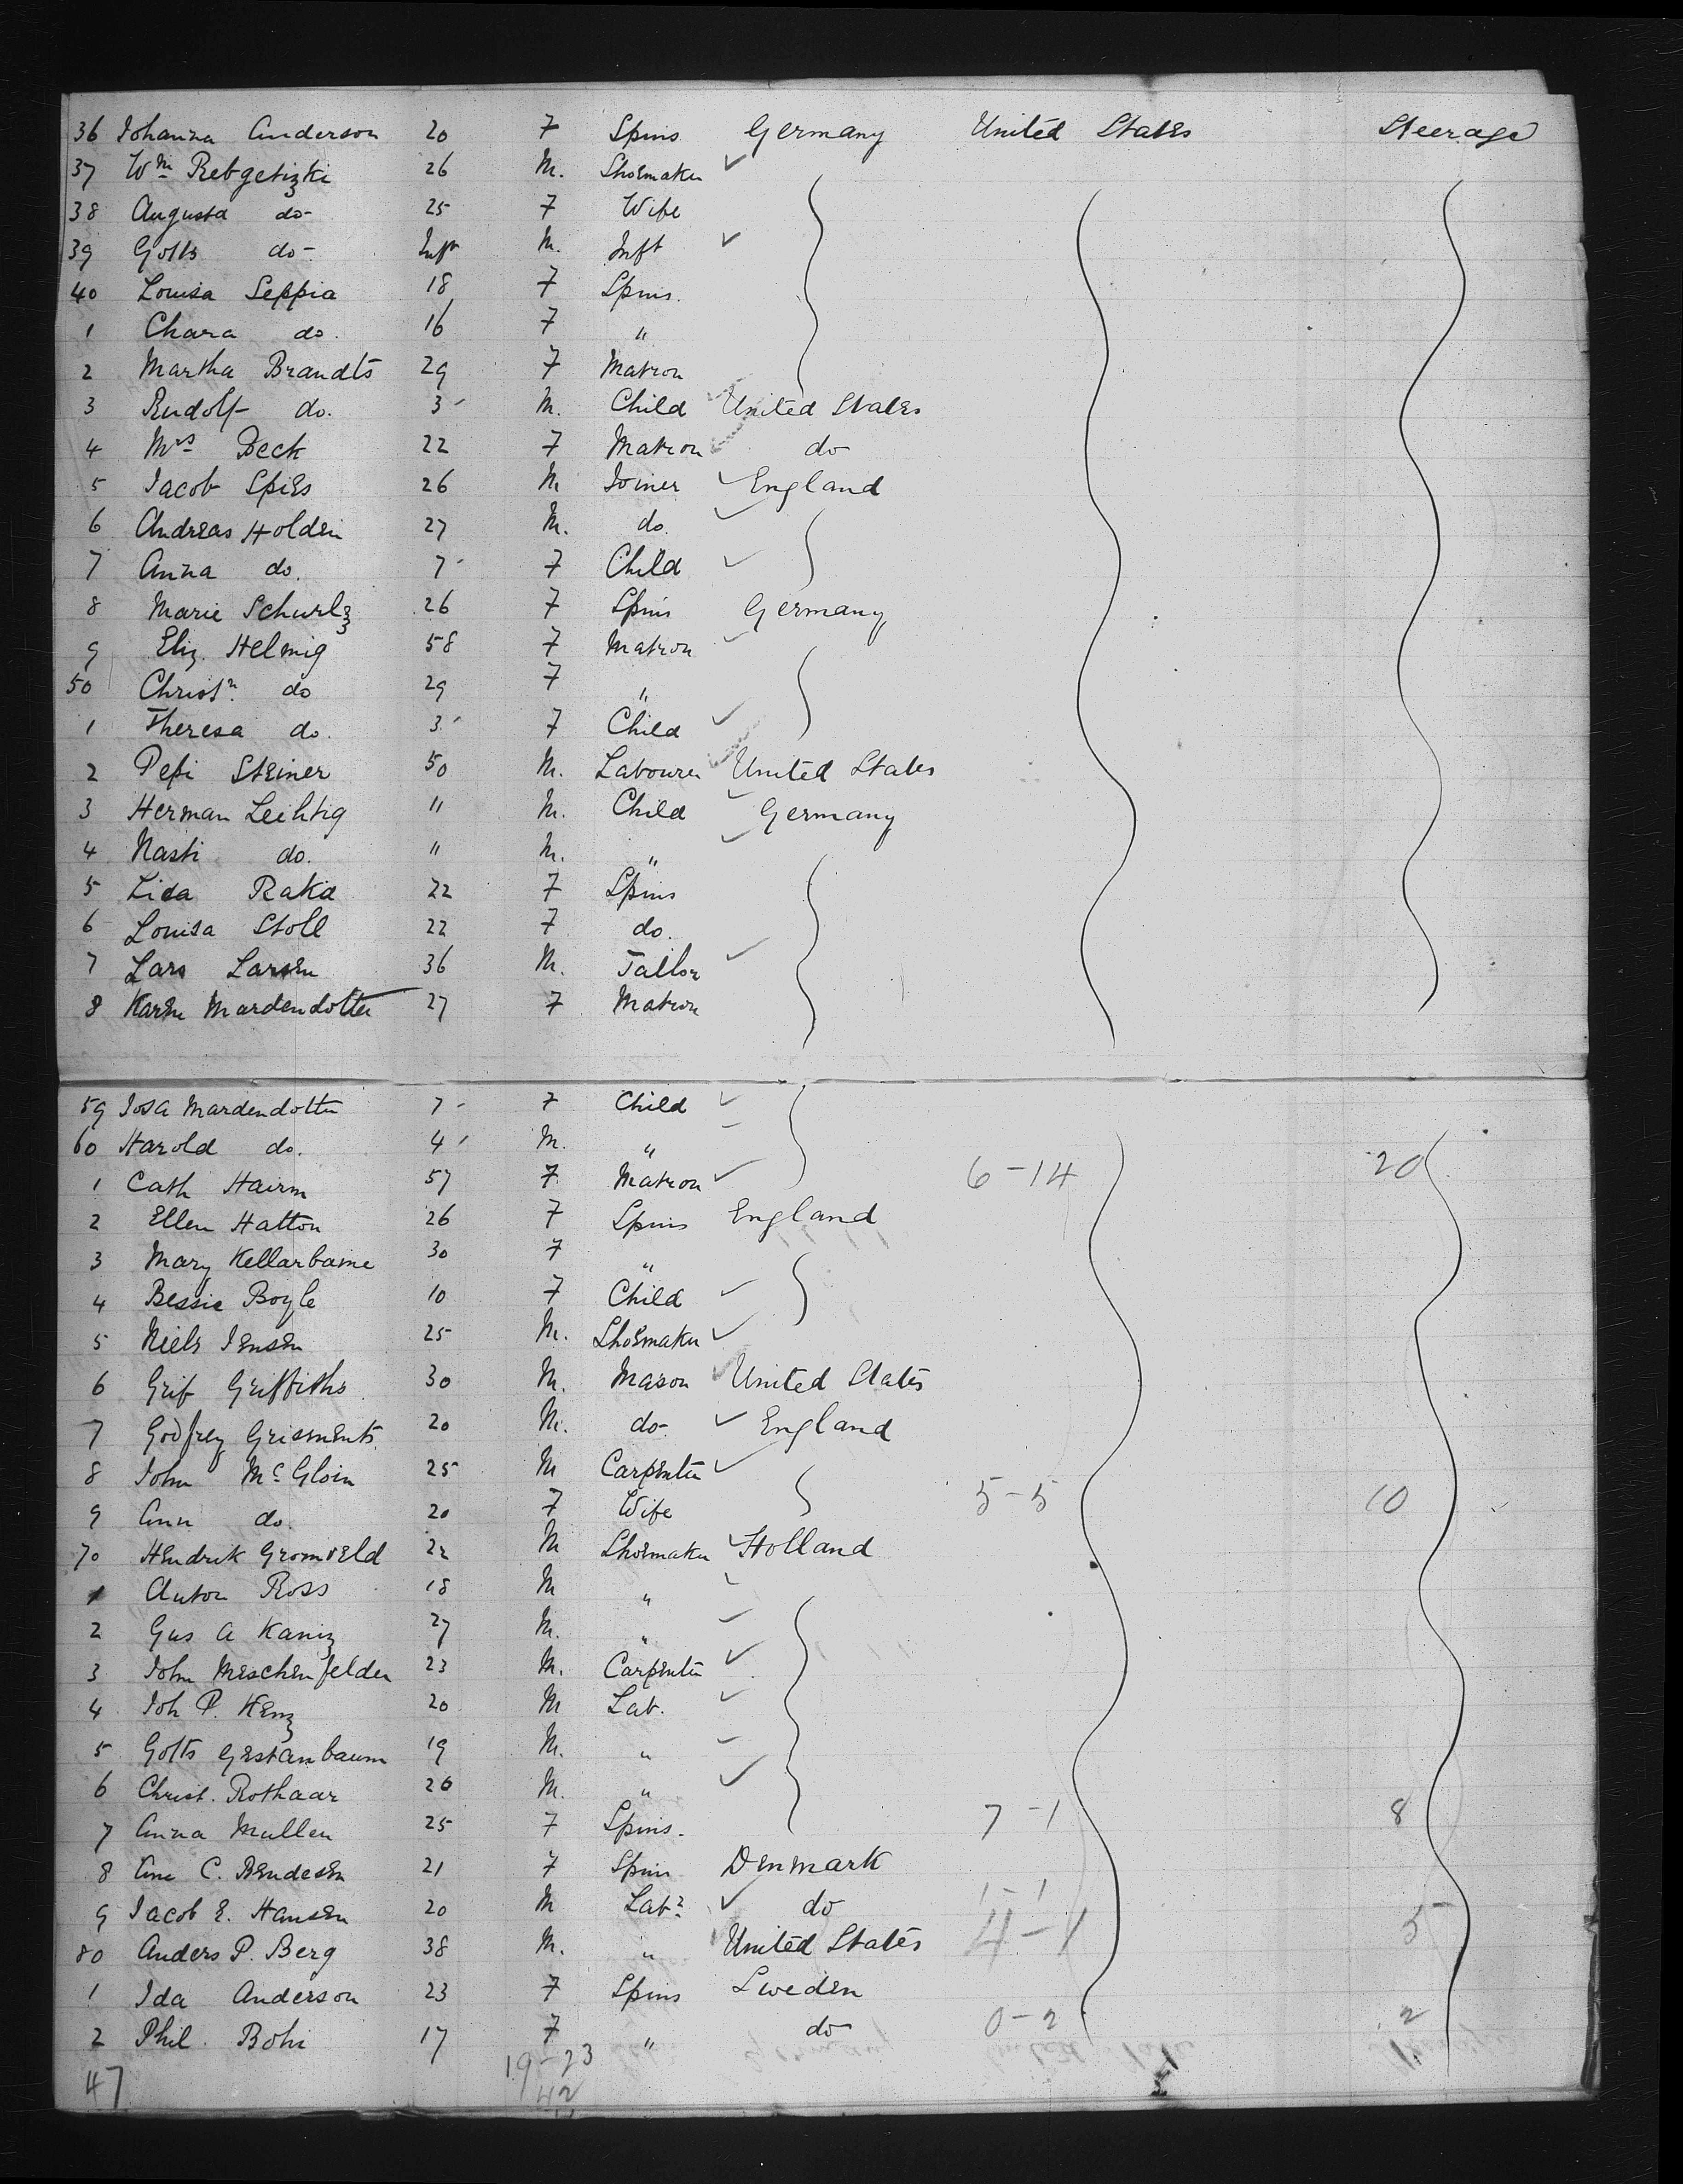 36 Johanna Anderson 20 F Spins Germany United States Steerage
37 Wm Rebgetizki 26 M. Shoemaker
38 Augusta do- 25 F Wife
39 Gotts do- Inft M. Inft
40 Louisa Seppia 18 F Spins.
1 Chara do. 16 F "
2 Martha Brandts 29 F Matron
3 Rudolf do. 3 M. Child United States
4 Mrs Beck 22 F Matron do
5 Jacob Spies 26 M Joiner England
6 Andreas Holden 27 M. do.
7 Anna do. 7 F Child
8 Marie Schurlz 26 F Spins Germany
9 Eliz. Helmig 58 F Matron
50 Christn. do 29 F "
1 Theresa do. 3 F Child
2 Pepi Steiner 50 M. Labourer United States
3 Herman Leihtig 11 M. Child Germany
4 Nasti do. 11 M. "
5 Lida Raka 22 F Spins
6 Louisa Stoll 22 F do.
7 Lars Larsen 36 M. Tailor
8 Karen Mardendotter 27 F Matron
59 Josa Mardendotter 7 F Child
60 Harold do. 4 M. "
1 Cath Hairm 57 F. Matron 6-14 20
2 Ellen Hatton 26 F Spins England
3 Mary Kellarbame 30 F "
4 Bessie Boyle 10 F Child
5 Niels Jensen 25 M. Shoemaker
6 Grif Griffiths 30 M. Mason United States
7 Godfrey Grisments 20 M. do- England
8 John McGloin 25 M Carpenter
9 Ann do. 20 F Wife 5-5 10
70 Hendrik Gromveld 22 M Shoemaker Holland
1 Anton Ross 18 M "
2 Gus A Kaniz 27 M. "
3 John Meschenfelder 23 M. Carpenter
4 Joh P. Kenz 20 M Lab.
5 Gotts Gestanbaum 19 M. "
6 Christ. Rothaar 26 M. "
7 Anna Mullen 25 F Spins. 7-1 8
8 Ane C. Bendesen 21 F Spins Denmark
9 Jacob E. Hansen 20 M Labr do 1-1
80 Anders P. Berg 38 M. " United States 4-1 5
1 Ida Anderson 23 F Spins Sweden
2 Phil. Bohi 17 F " do 0-2 2
47 19-23
42